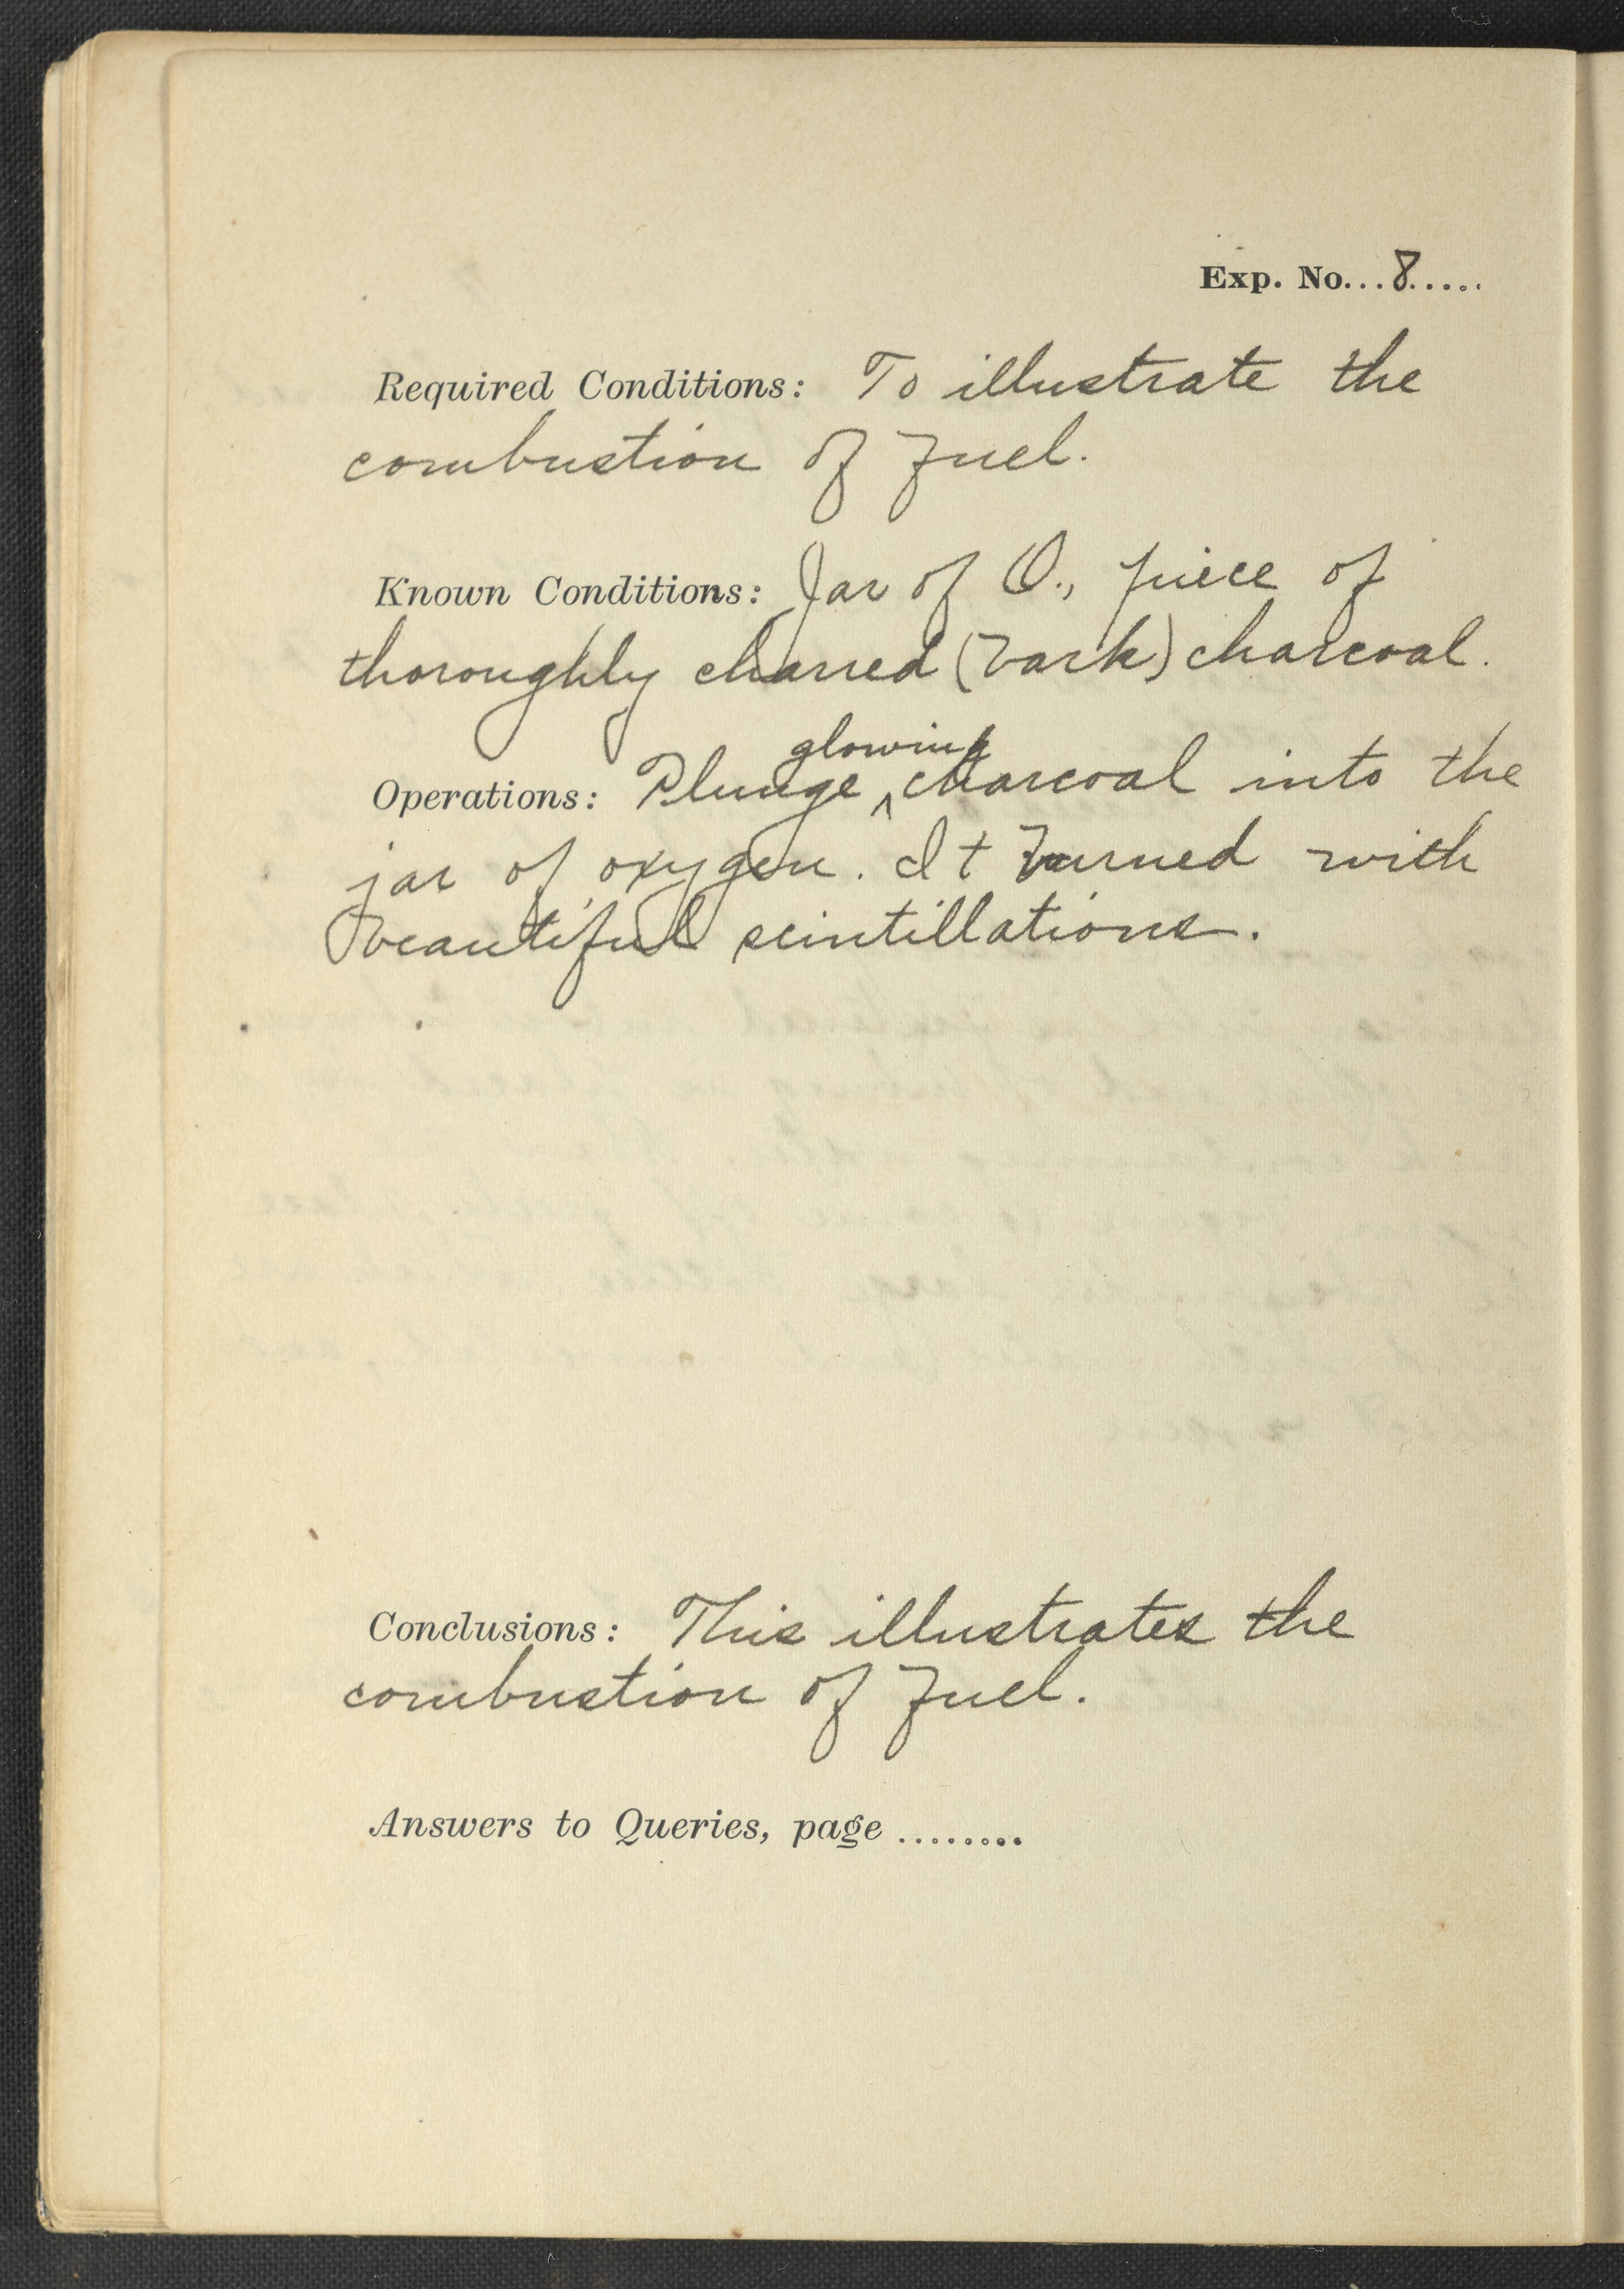 Exp. No...8.....
Required Conditions: To illustrate the
combustion of fuel.
Known Conditions: Jar of O., piece of
thoroughly charred (bark) charcoal.
glowing
Operations: Plunge ^ charcoal into the
jar of oxygen. It burned with
beautiful scintillations.
Conclusions: This illustrates the
combustion of fuel.
Answers to Queries, page ........